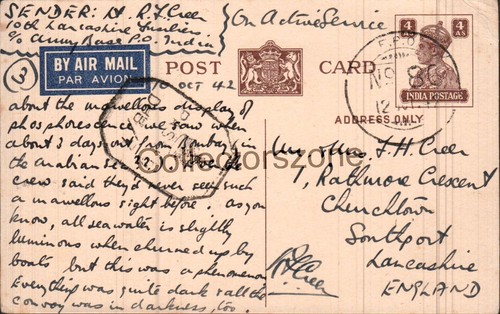 SENDER: Lt. R. L. Creer
10th Lancashire Fusiliers
c/o Army Base P.O. India
On Active Service
3
BY AIR MAIL
PAR AVION
POST CARD
4 AS
4 AS
INDIA POSTAGE
F.P.O.
No 86
12
ADDRESS ONLY
10 OCT 42
about the marvellous display of
phosphorescence we saw when
about 3 days out from Bombay in
the Arabian Sea. The
crew said they'd never seen such
a marvellous sight before. As you
know, all sea water is slightly
luminous when churned up by
boats but this was a phenomenon
Everything was quite dark & all the
convoy was in darkness, too.
Collectorszone
Mr & Mrs J. H. Creer
7, Rathmore Crescent
Churchtown
Southport
Lancashire
ENGLAND
RLCreer